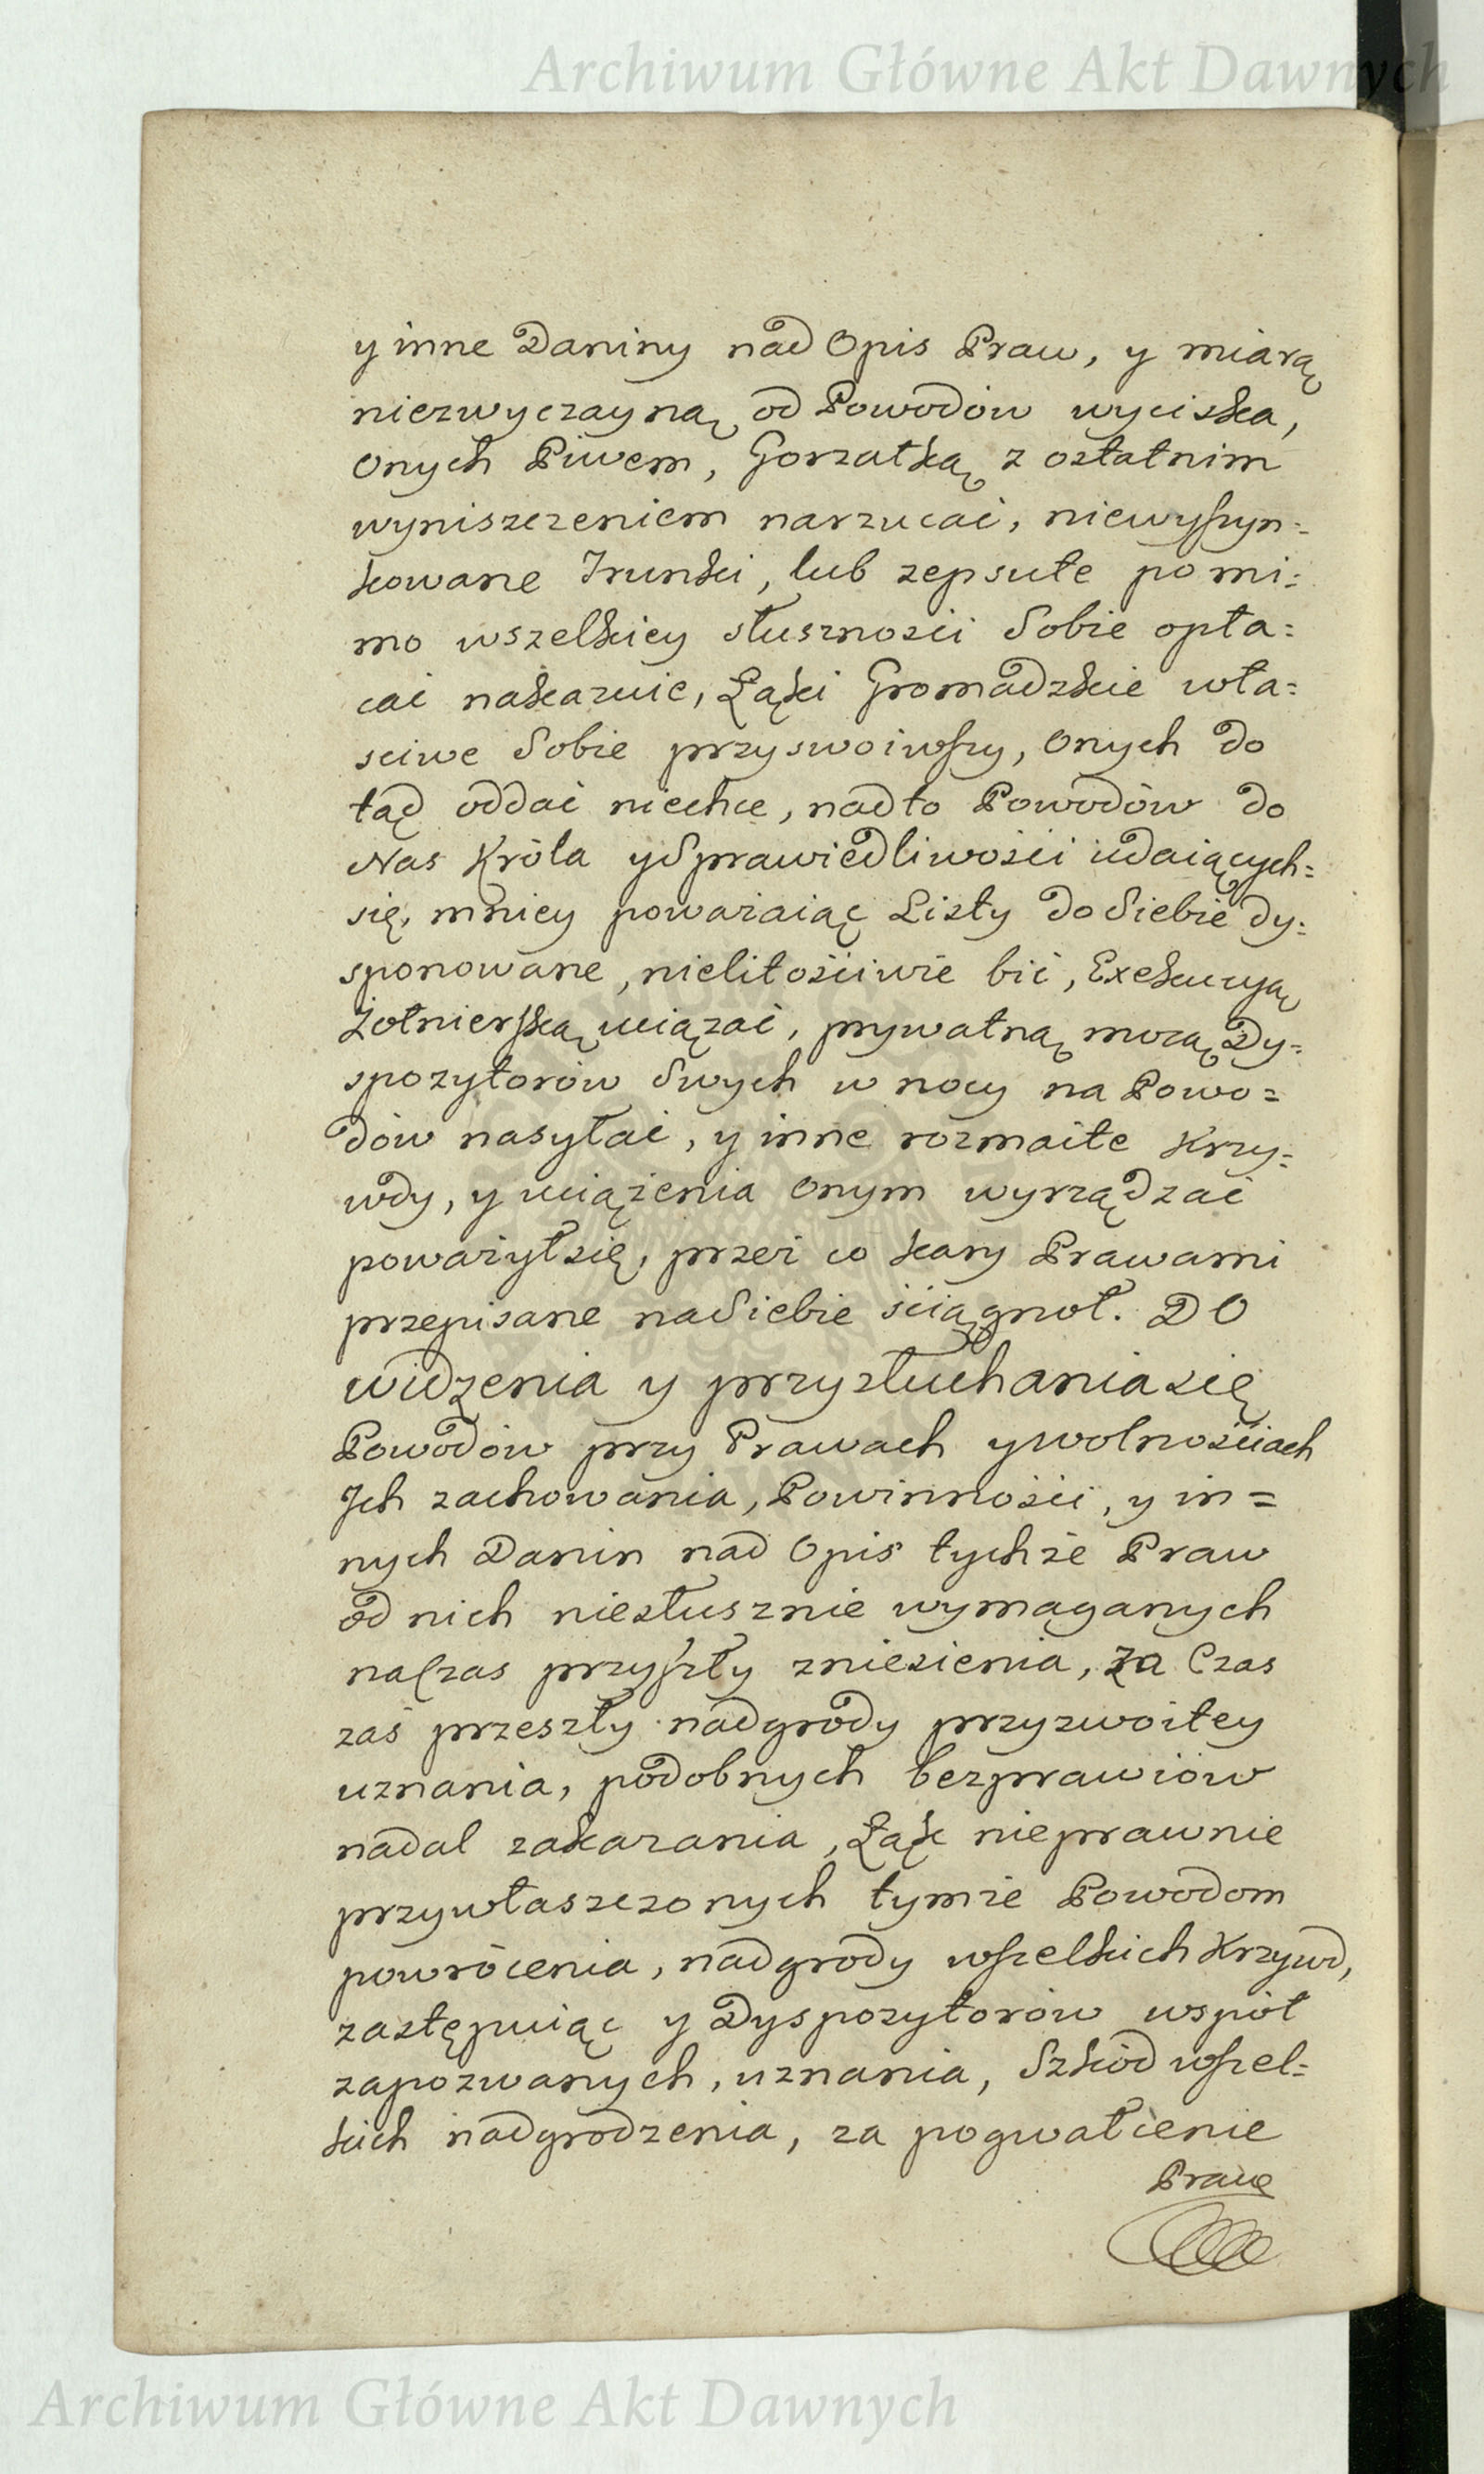 Archiwum Główne Akt Dawnych
y inne Daniny nad Opis Praw, y miarą
niezwyczayną od Powodów wyciska,
Onych Piwem, Gorzałką z ostatnim
wyniszczeniem narzucać, niewyszyn=
kowane Trunki, lub zepsute pomi=
mo wszelkiey słuszności Sobie opła=
cać nakazuie, Łąki Gromadzkie wła=
sciwe Sobie przyswoiwszy, Onych do
tąd oddać niechce, nadto Powodów do
Nas Króla y Sprawiedliwości udaiących=
się, mniey poważaiąc Listy do Siebie dy=
sponowane, nielitościwie bić, Exekucyą
Żołnierską uciązać, prywatną mocą Dy=
spozytorów Swych w nocy na Powo=
dów nasyłać, y inne rozmaite Krzy=
wdy, y uciążenia Onym wyrządzać
poważył się, przez co kary Prawami
przepisane na Siebie ściągnoł. DO
widzenia y przysłuchania się
Powodów przy Prawach y wolnościach
Ich zachowania, Powinności, y in=
nych Danin nad Opis tychże Praw
od nich niesłusznie wymaganych
na Czas przyszły zniesienia, za Czas
zaś przeszły nadgrody przyzwoitey
uznania, podobnych bezprawiów
nadal zakazania, Łąk nieprawnie
przywłaszczonych tymże Powodom
powrócenia, nadgrody wszelkich Krzywd,
zastępuiąc y Dyspozytorów wspòł
zapozwanych, uznania, Szkód wszel=
kich nadgrodzenia, za pogwałcenie
Praw
Archiwum Główne Akt Dawnych